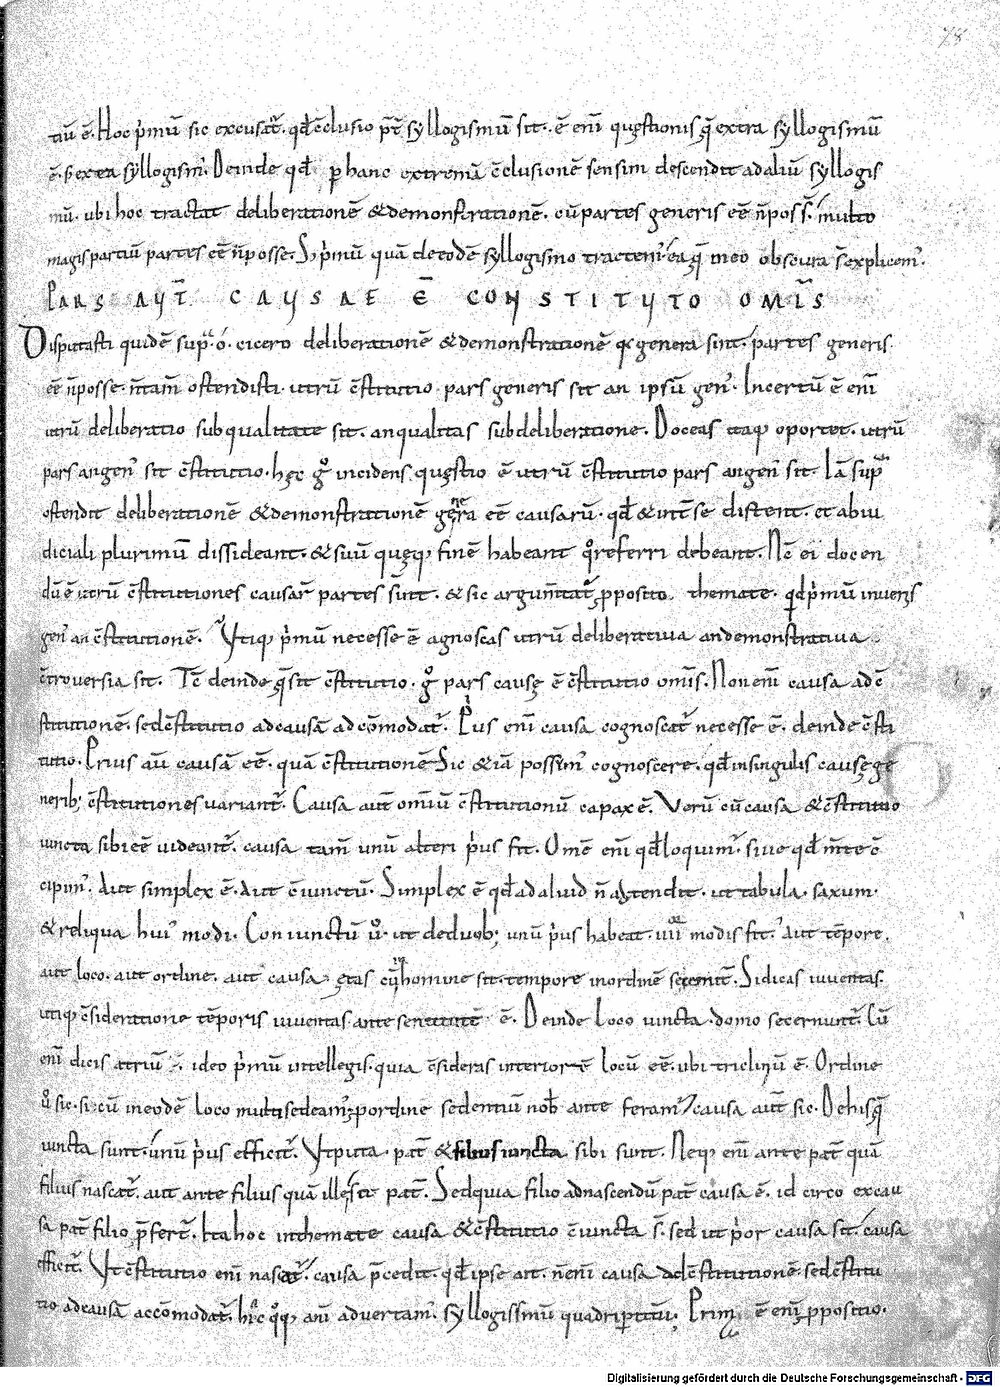 78
tiū ē. Hoc p̄mū sic excusat̄. qđ c̄clusio p̄t syllogismū sit. ē eni questionis q̄ extra syllogismū
ē. s; extra syllogism̄. Deinde qđ p hanc extremā c̄clusionē sensim descendit ad aliū syllogis
mū. ubi hoc tractat deliberationē & demonstrationē. cū partes generis eē n̄ poss̄. multo
magis partiū partes eē n̄ posse. S; p̄mū quā de eodē syllogismo tractem̄ ea q̄ in eo obscura s̄ explicem̄.
PARS AUT̄ CAUSAE Ē CONSTITUTO OM̄IS
Disputasti quidē sup̄. o. cicero deliberationē & demonstrationē q̄ genera sint. partes generis
eē n̄ posse. n̄ tam̄ ostendisti. utrū c̄stitutio pars generis sit an ipsū gen̄. Incertū ē eni
utrū deliberatio sub qualitate sit. an qualitas sub deliberatione. Doceas itaq; oportet. utrū
pars an gen̄ sit c̄stitutio. hec g̊ incidens questio ē utrū c̄stitutio pars an gen̄ sit. Iā sup̄
ostendit deliberationē & demonstrationē genera eē causarū. qđ & int̄ se distent. et a iu
diciali plurimū dissideant. & suū queq; finē habeant q̊ referri debeant. Nc̄ ei docen
dū ē utrū c̄stitutiones causar̄ partes sunt. & sic argum̄tat̄ p̄posito themate. qđ p̄mū invenis
gen̄ an c̄stitutionē. Utiq; p̄mū necesse ē agnoscas utrū deliberativa an demonstrativa
c̄troversia sit. Tc̄ deinde q̄ sit c̄stitutio. g̊ pars cause ē c̄stitutio om̄is. Non eni causa ad c̄
stitutionē. sed c̄stitutio ad causā adcōmodat̄. P̄us eni causa cognoscat̄ necesse ē. deinde c̄sti
tutio. Prius aū causā eē. quā c̄stitutionē Sic & iā possim̄ cognoscere. qđ in singulis cause ge
nerib; c̄stitutiones variant̄. Causa aut om̄iū c̄stitutionū capax ē. Verū cū causa & c̄stitutio
iuncta sibi eē videant̄. causa tam̄ unū alteri p̄us fit. Om̄e eni qđ loquim̄. sive qđ m̄te c̄
cipim̄. Aut simplex ē. Aut c̄iunctū. Simplex ē qđ ad aliud n̄ attendit. ut tabula. saxum.
& reliqua hui̕ modi. Coniunctū ů. ut de duob; unū p̄us habeat. modis fit. Aut tēpore.
aut loco. aut ordine. aut causa. etas cū homine sit. tempore in ordinē secernit̄. Si dicas iuventas.
utiq; c̄sideratione tēporis iuventas ante senectutē ē. Deinde loco iuncta domo secernunt̄. Cū
eni dicis atriū. ideo p̄mū intellegis. quia c̄sideras interiorē locū eē. ubi tricliniū ē. Ordine
ů sic. si cū in eodē loco multi sedeam̄. p ordinē sedentiū nob̄ ante feram̄. causa aut sic. De his q̄
iuncta sunt. unū p̄us efficit̄. Ut puta. pat̄ & filius iuncta sibi sunt. Neq; eni ante pat̄ quā
filius nascat̄. aut ante filius quā ille sit pat̄. Sed quia filio ad nascendū pat̄ causa ē. id circo ex cau
sa pat̄ filio p̄fert̄. Ita hoc in themate causa & c̄stitutio c̄iuncta s̄. sed ut p̄or causa sit. causa
efficit̄. Ut c̄stitutio eni nascat̄. causa p̄cedit. qđ ipse ait. n̄ eni causa ad c̄stitutionē. sed c̄stitu
tio ad causā accōmodat̄. hic q̊q; aū advertam̄. syllogissmū quadripertitū. Prima ē eni p̄positio.
Digitalisierung gefördert durch die Deutsche Forschungsgemeinschaft - DFG